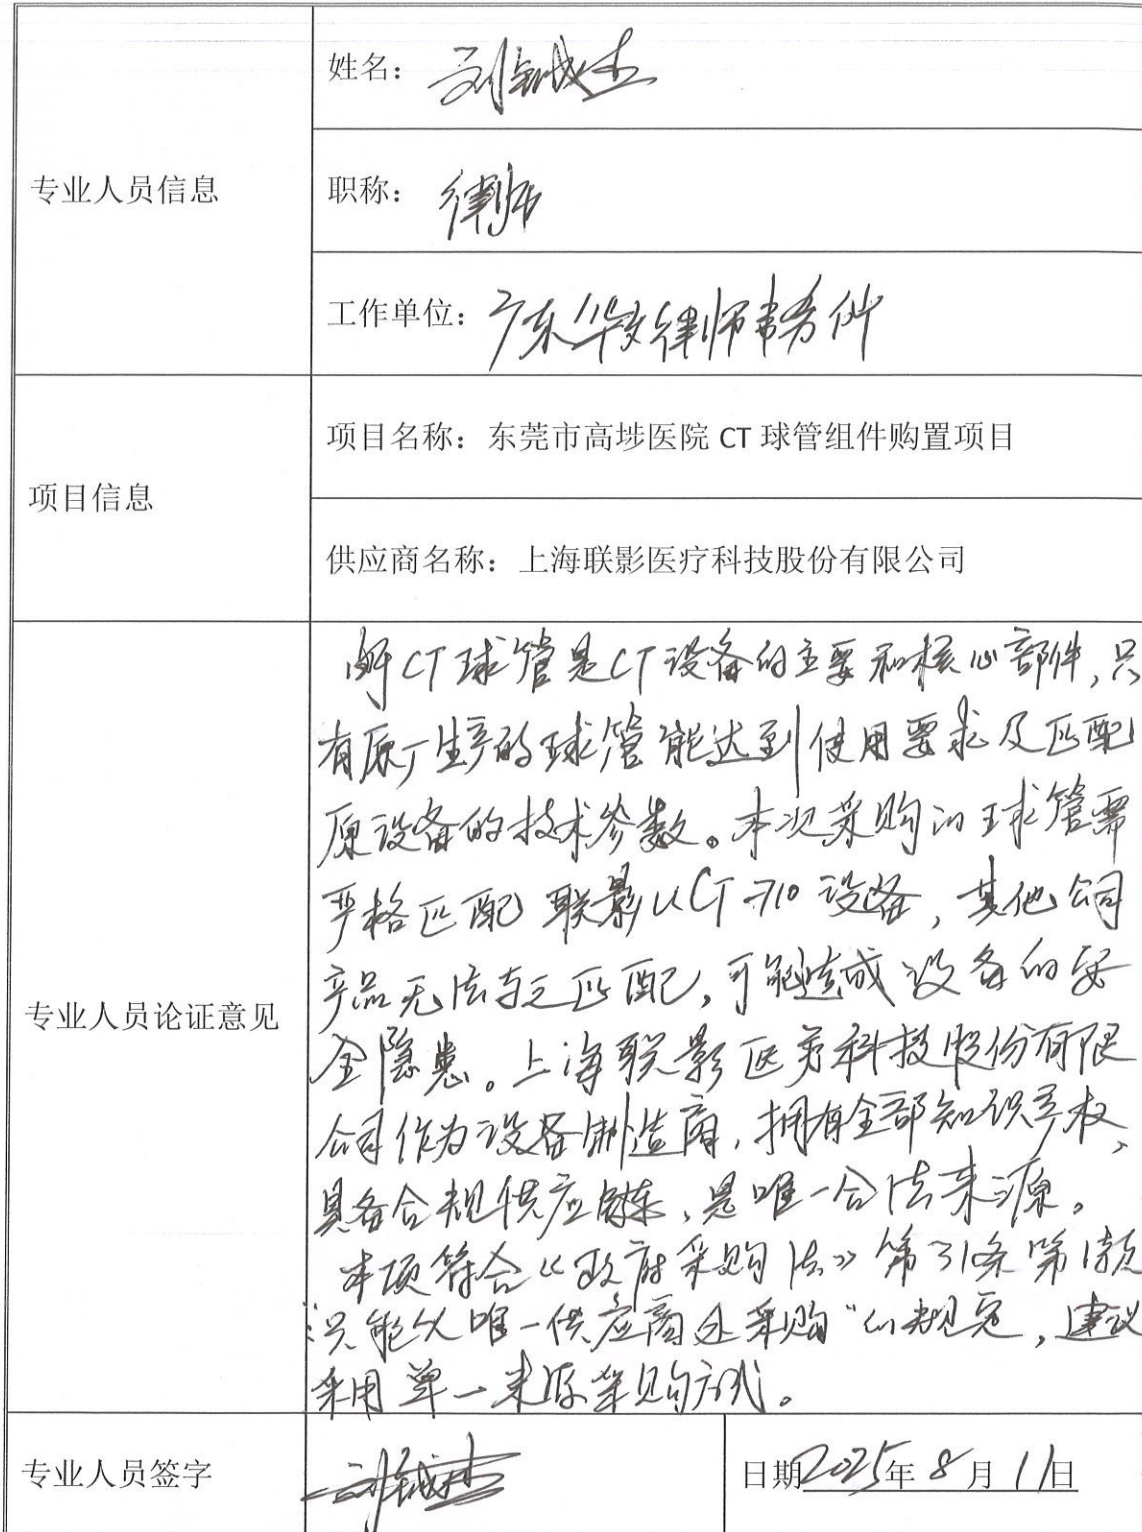 姓名：刘铖杰
职称：律师
专业人员信息
工作单位：广东华文律师事务所
项目名称：东莞市高埗医院 CT 球管组件购置项目
项目信息
供应商名称：上海联影医疗科技股份有限公司
CT球管是CT设备的主要和核心部件,只
有原厂生产的球管能达到使用要求及匹配
原设备的技术参数。本次采购的球管需
严格匹配联影uCT 710设备,其他公司
产品无法与之匹配,可能造成设备的安
专业人员论证意见
全隐患。上海联影医疗科技股份有限
公司作为设备制造商,拥有全部知识产权,
具备合规供应链,是唯一合法来源。
本项符合《政府采购法》第31条第1款
"只能从唯一供应商处采购"的规定,建议
采用单一来源采购方式。
专业人员签字
刘铖杰
日期2025年8月11日